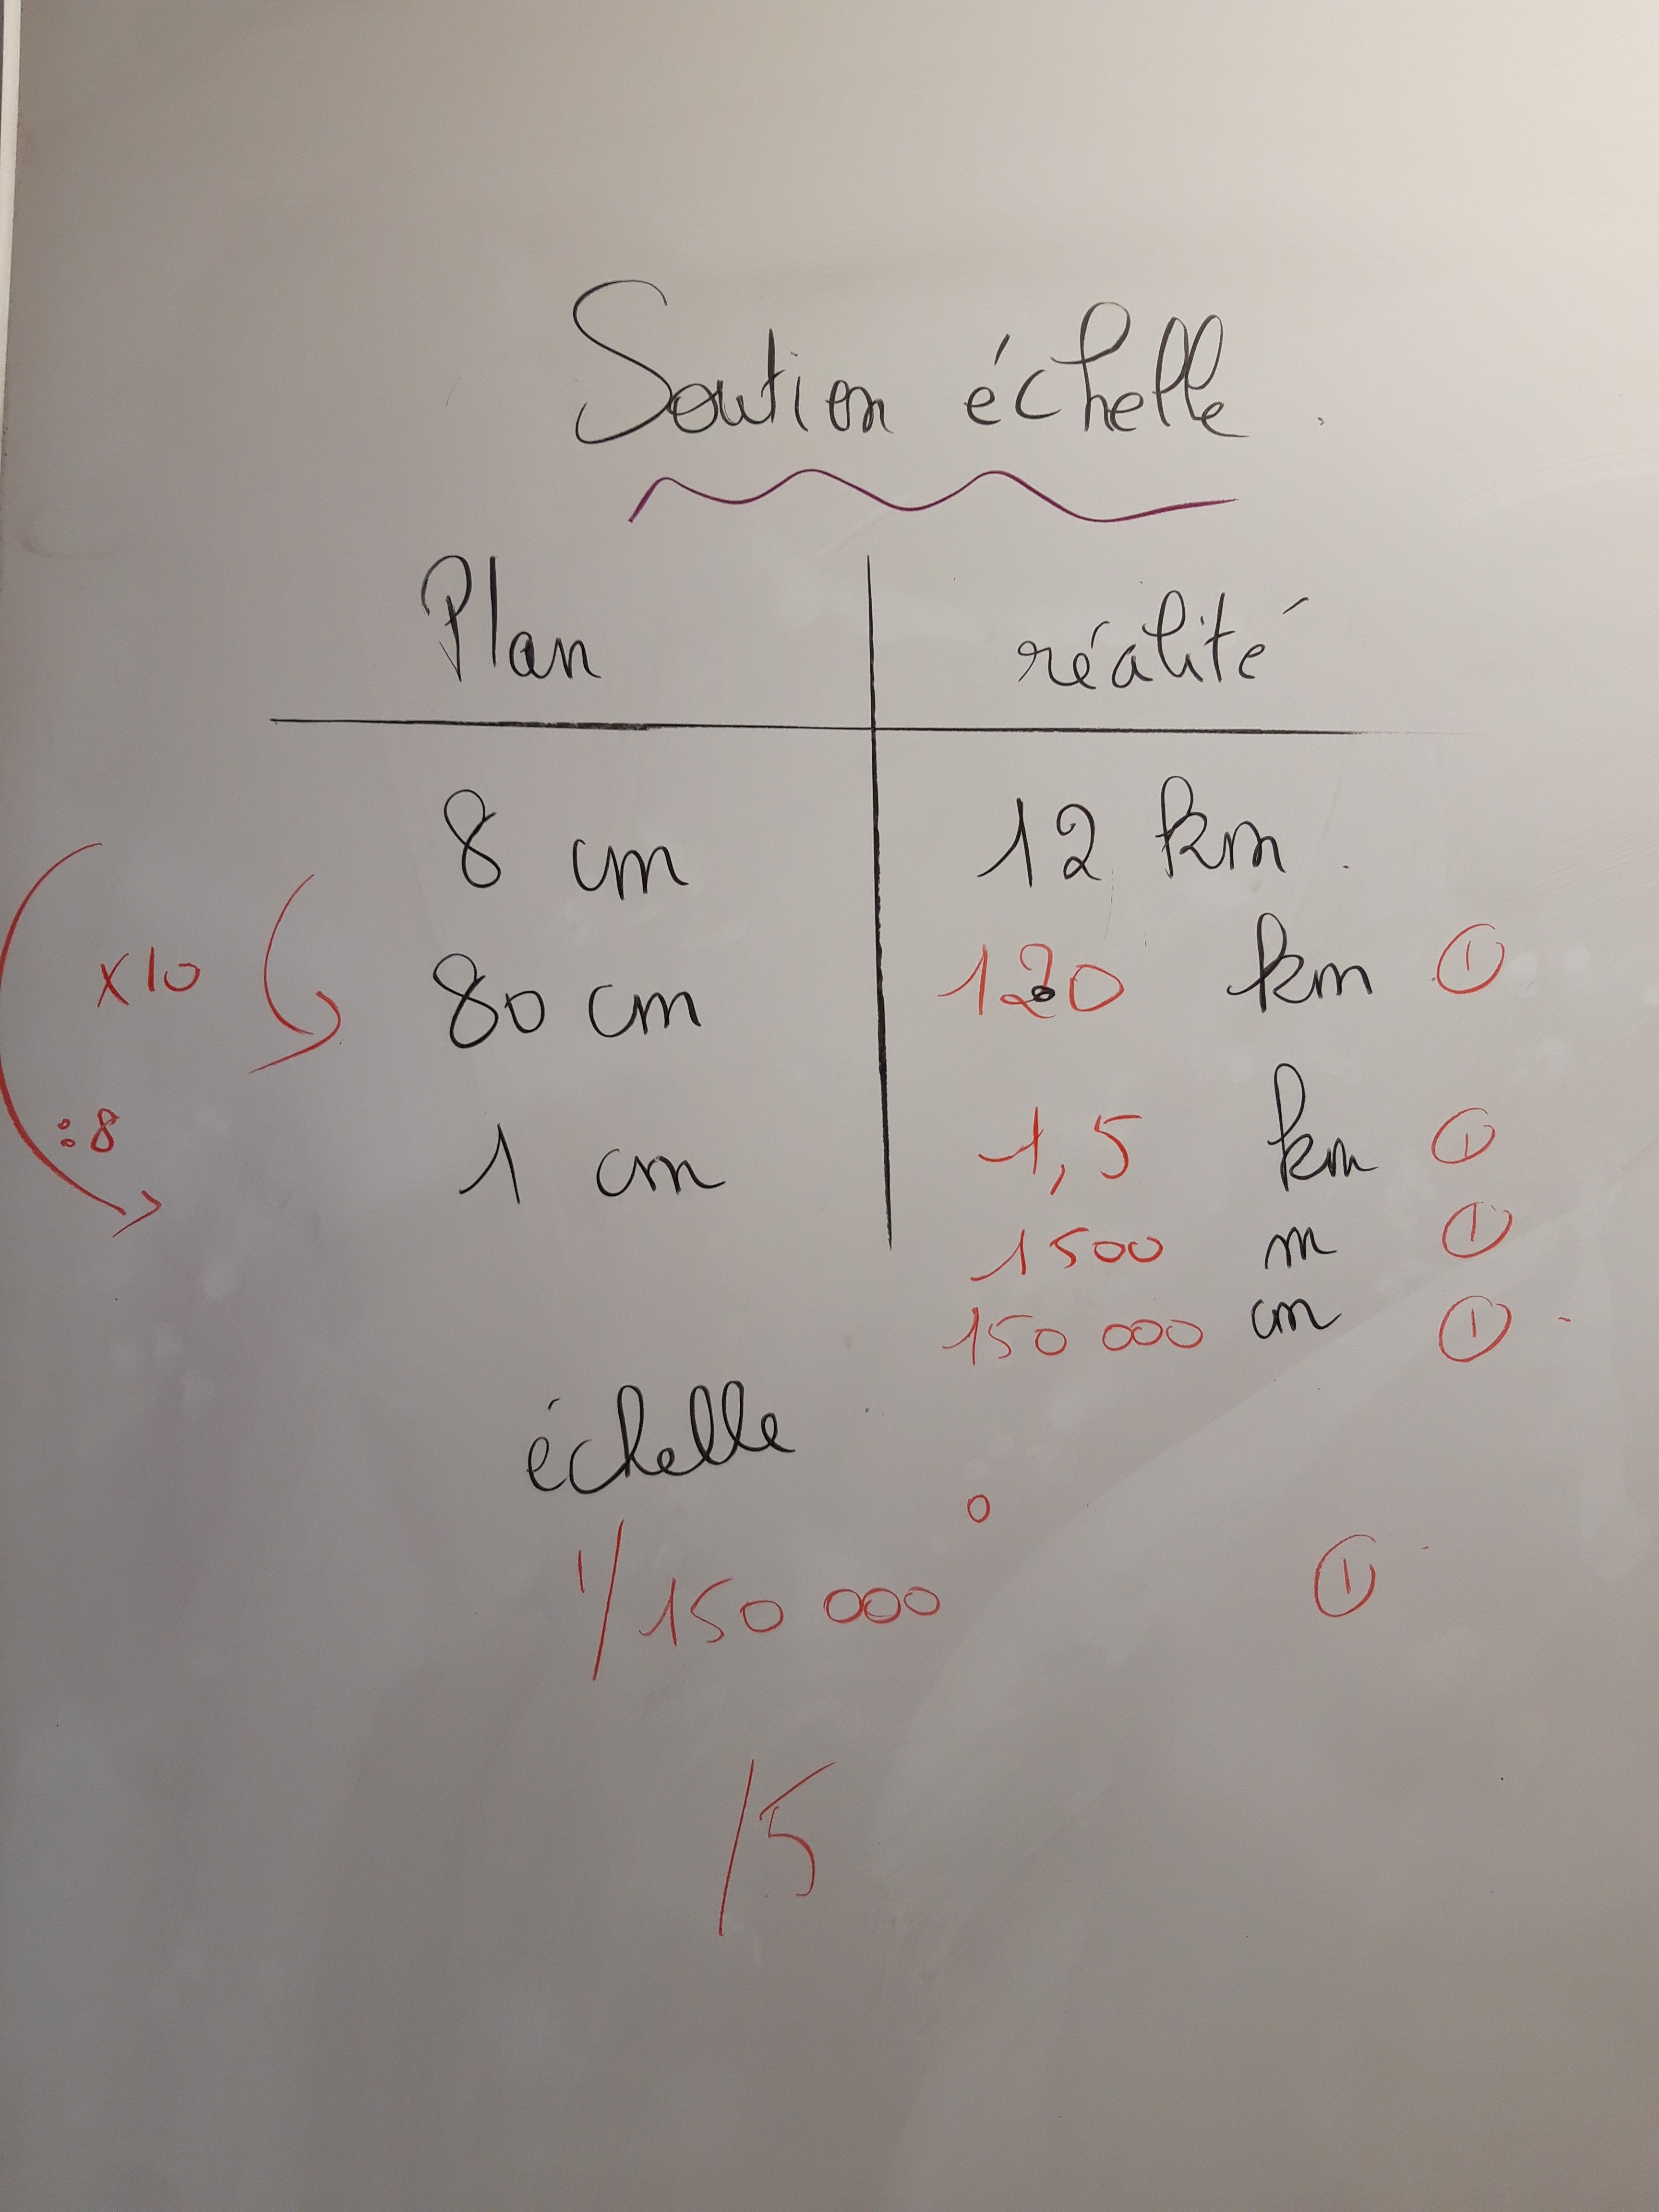 Soution échelle.
Plan réalité
8 cm 12 km.
x10 80 cm 120 km 1
:8 1 cm 1,5 km 1
1500 m 1
150 000 cm 1
échelle
1/150 000 1
/5